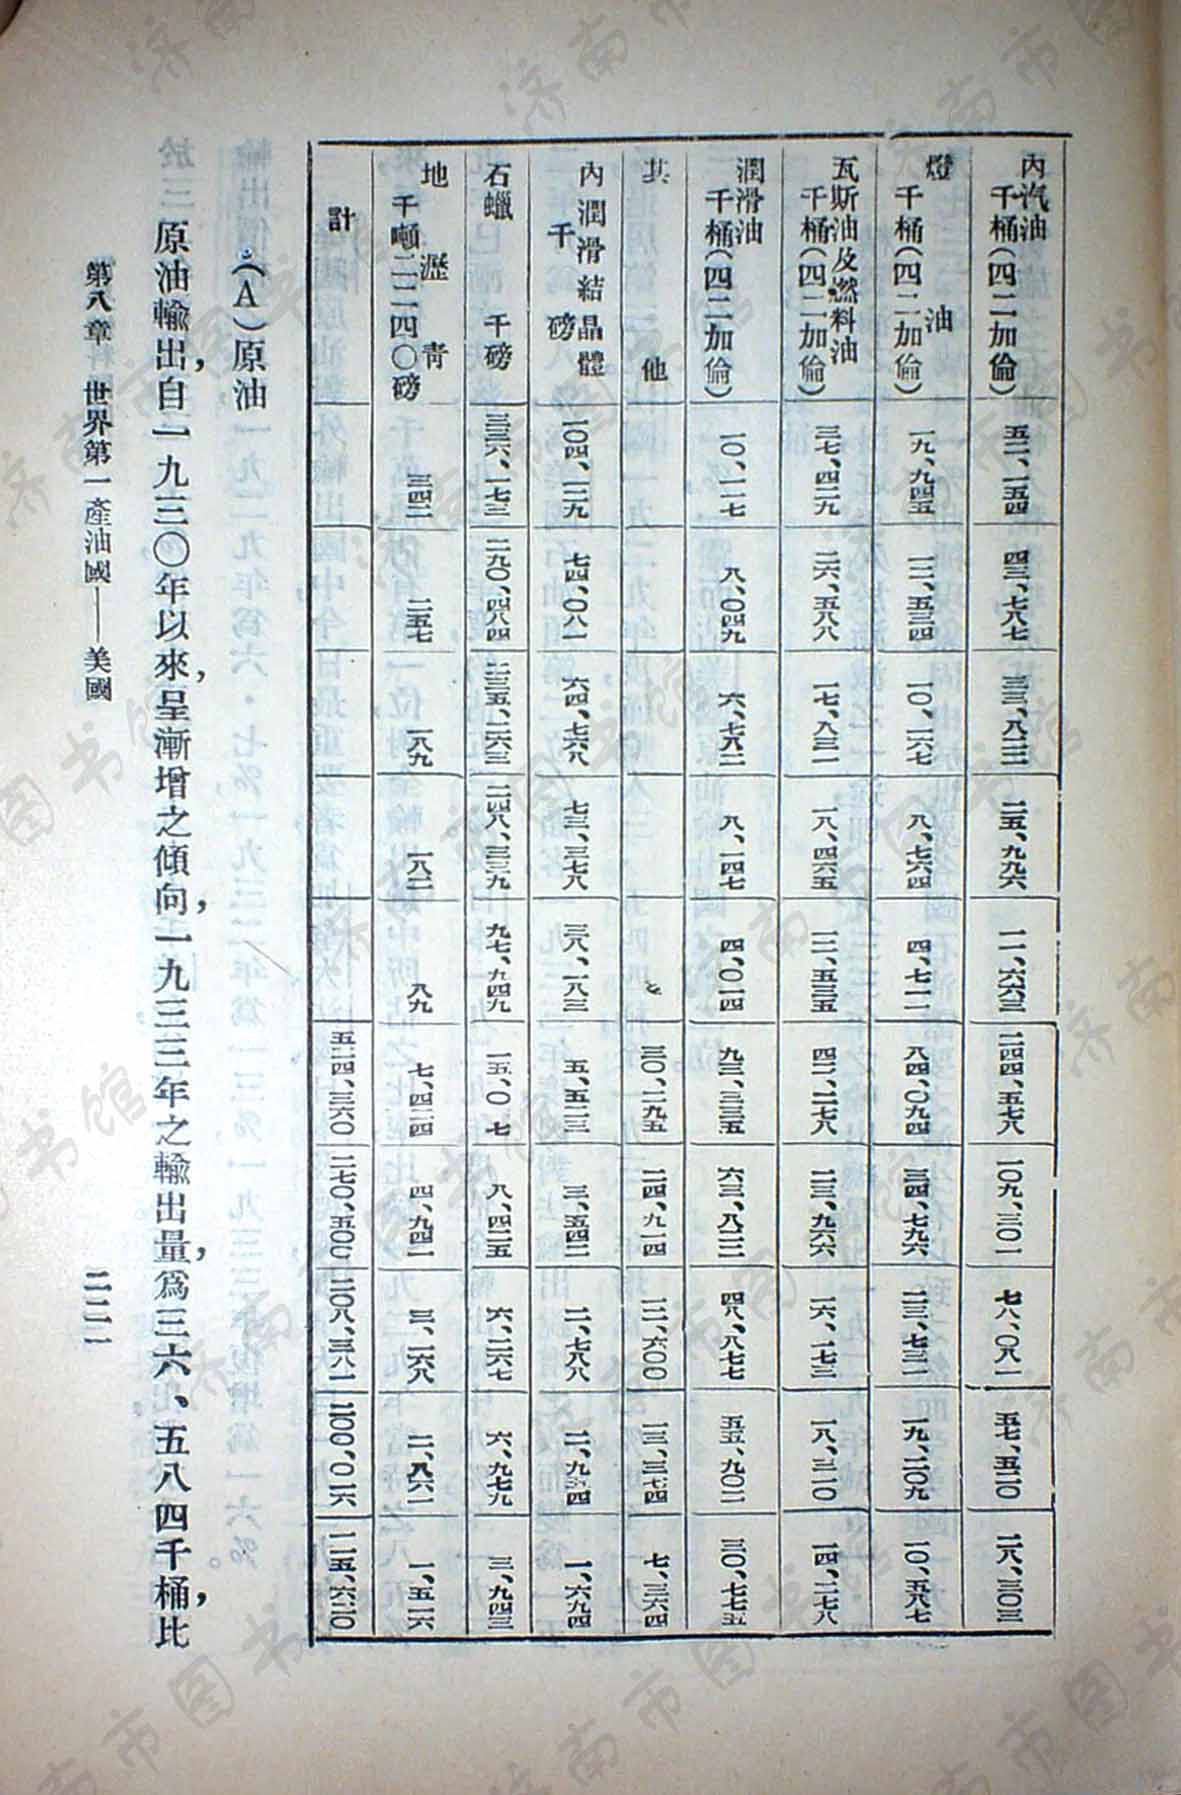 內汽油
千桶(四二加倫) 五二、一五四 四三、七八七 二五、九九六 一一、六六三 二四四、五七八 一〇九、三〇一 七八、〇八一 五七、五二〇 二八、三〇三
燈油
千桶(四二加倫) 一九、九四五 一二、五三四 一〇、一六七 八、七六四 四、七一一 八四、〇九四 三四、七九六 二三、七三一 一九、二〇九 一〇、五八七
瓦斯油及燃料油
千桶(四二加倫) 三七、四二九 二六、五八八 一七、八三一 一八、四六五 一二、五三五 四二、二七八 二三、九六六 一六、一七三 一八、三二〇 一四、二七八
潤滑油
千桶(四二加倫) 一〇、一一七 八、〇四九 六、七八二 八、一四七 四、〇一四 九三、三三五 六三、八二二 四八、八七七 五五、九〇二 三〇、七七五
其他 三〇、二九五 二四、九一四 一二、六〇〇 一三、三七四 七、三六四
內潤滑結晶體
千磅 一〇四、一二九 七四、〇八一 六四、七六八 七三、三七八 三八、一八三 五、五二三 三、五四二 二、七八八 一、六九四
石蠟 千磅 三三六、一七三 二九〇、四八四 二三五、二六三 二四八、三三九 九七、九四九 八、四二五 六、二六七 六、九七九 三、九四三
地瀝青
千噸二二四〇磅 三四二 二五七 一八九 一八二 八九 七、四二四 四、九四一 三、二六八 二、八六一 一、五二六
計 五二四、三六〇 二七〇、五〇〇 二〇八、三八一 二〇〇、〇一六 一一五、六二〇
(A)原油
原油輸出，自一九三〇年以來，呈漸增之傾向，一九三三年之輸出量，爲三六、五八四千桶，比
第八章 世界第一產油國——美國
二二一
济南市图书馆